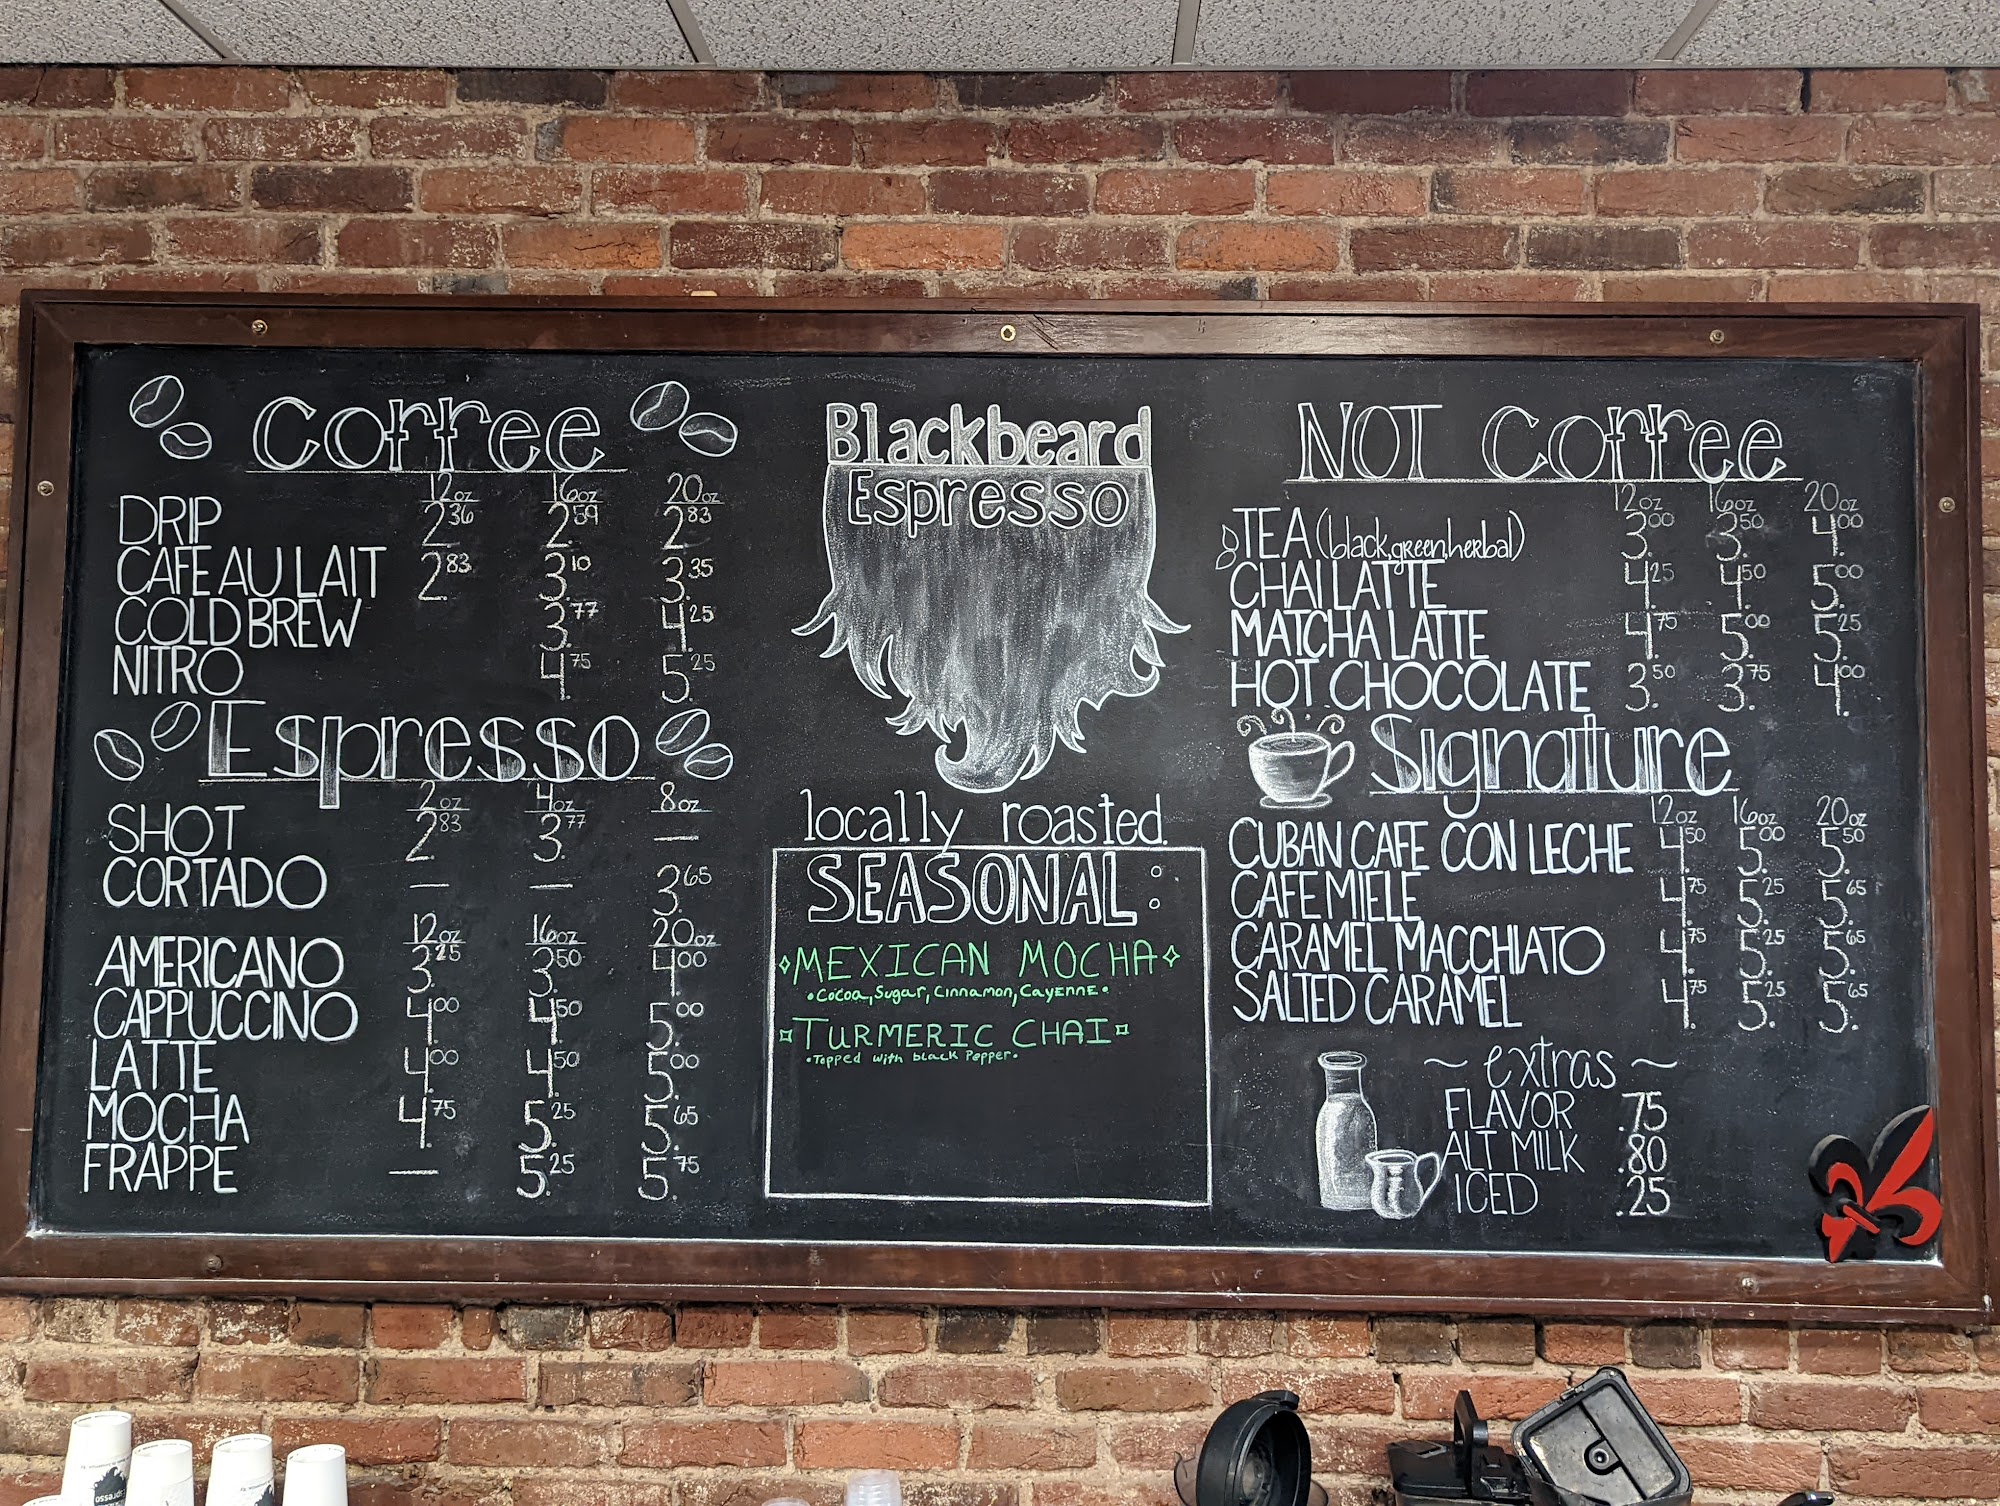 Coffee
12oz 16oz 20oz
DRIP 2.36 2.59 2.83
CAFE AU LAIT 2.83 3.10 3.35
COLD BREW 3.77 4.25
NITRO 4.75 5.25
Espresso
2oz 4oz 8oz
SHOT 2.83 3.77 —
CORTADO — — 3.65
12oz 16oz 20oz
AMERICANO 3.25 3.50 4.00
CAPPUCCINO 4.00 4.50 5.00
LATTE 4.00 4.50 5.00
MOCHA 4.75 5.25 5.65
FRAPPE — 5.25 5.75
Blackbeard
Espresso
locally roasted.
SEASONAL:
MEXICAN MOCHA
•Cocoa, Sugar, Cinnamon, Cayenne•
TURMERIC CHAI
•Topped with black Pepper•
NOT Coffee
12oz 16oz 20oz
TEA (black, green, herbal) 3.00 3.50 4.00
CHAI LATTE 4.25 4.50 5.00
MATCHA LATTE 4.75 5.00 5.25
HOT CHOCOLATE 3.50 3.75 4.00
Signature
12oz 16oz 20oz
CUBAN CAFE CON LECHE 4.50 5.00 5.50
CAFE MIELE 4.75 5.25 5.65
CARAMEL MACCHIATO 4.75 5.25 5.65
SALTED CARAMEL 4.75 5.25 5.65
~ extras ~
FLAVOR .75
ALT MILK .80
ICED .25